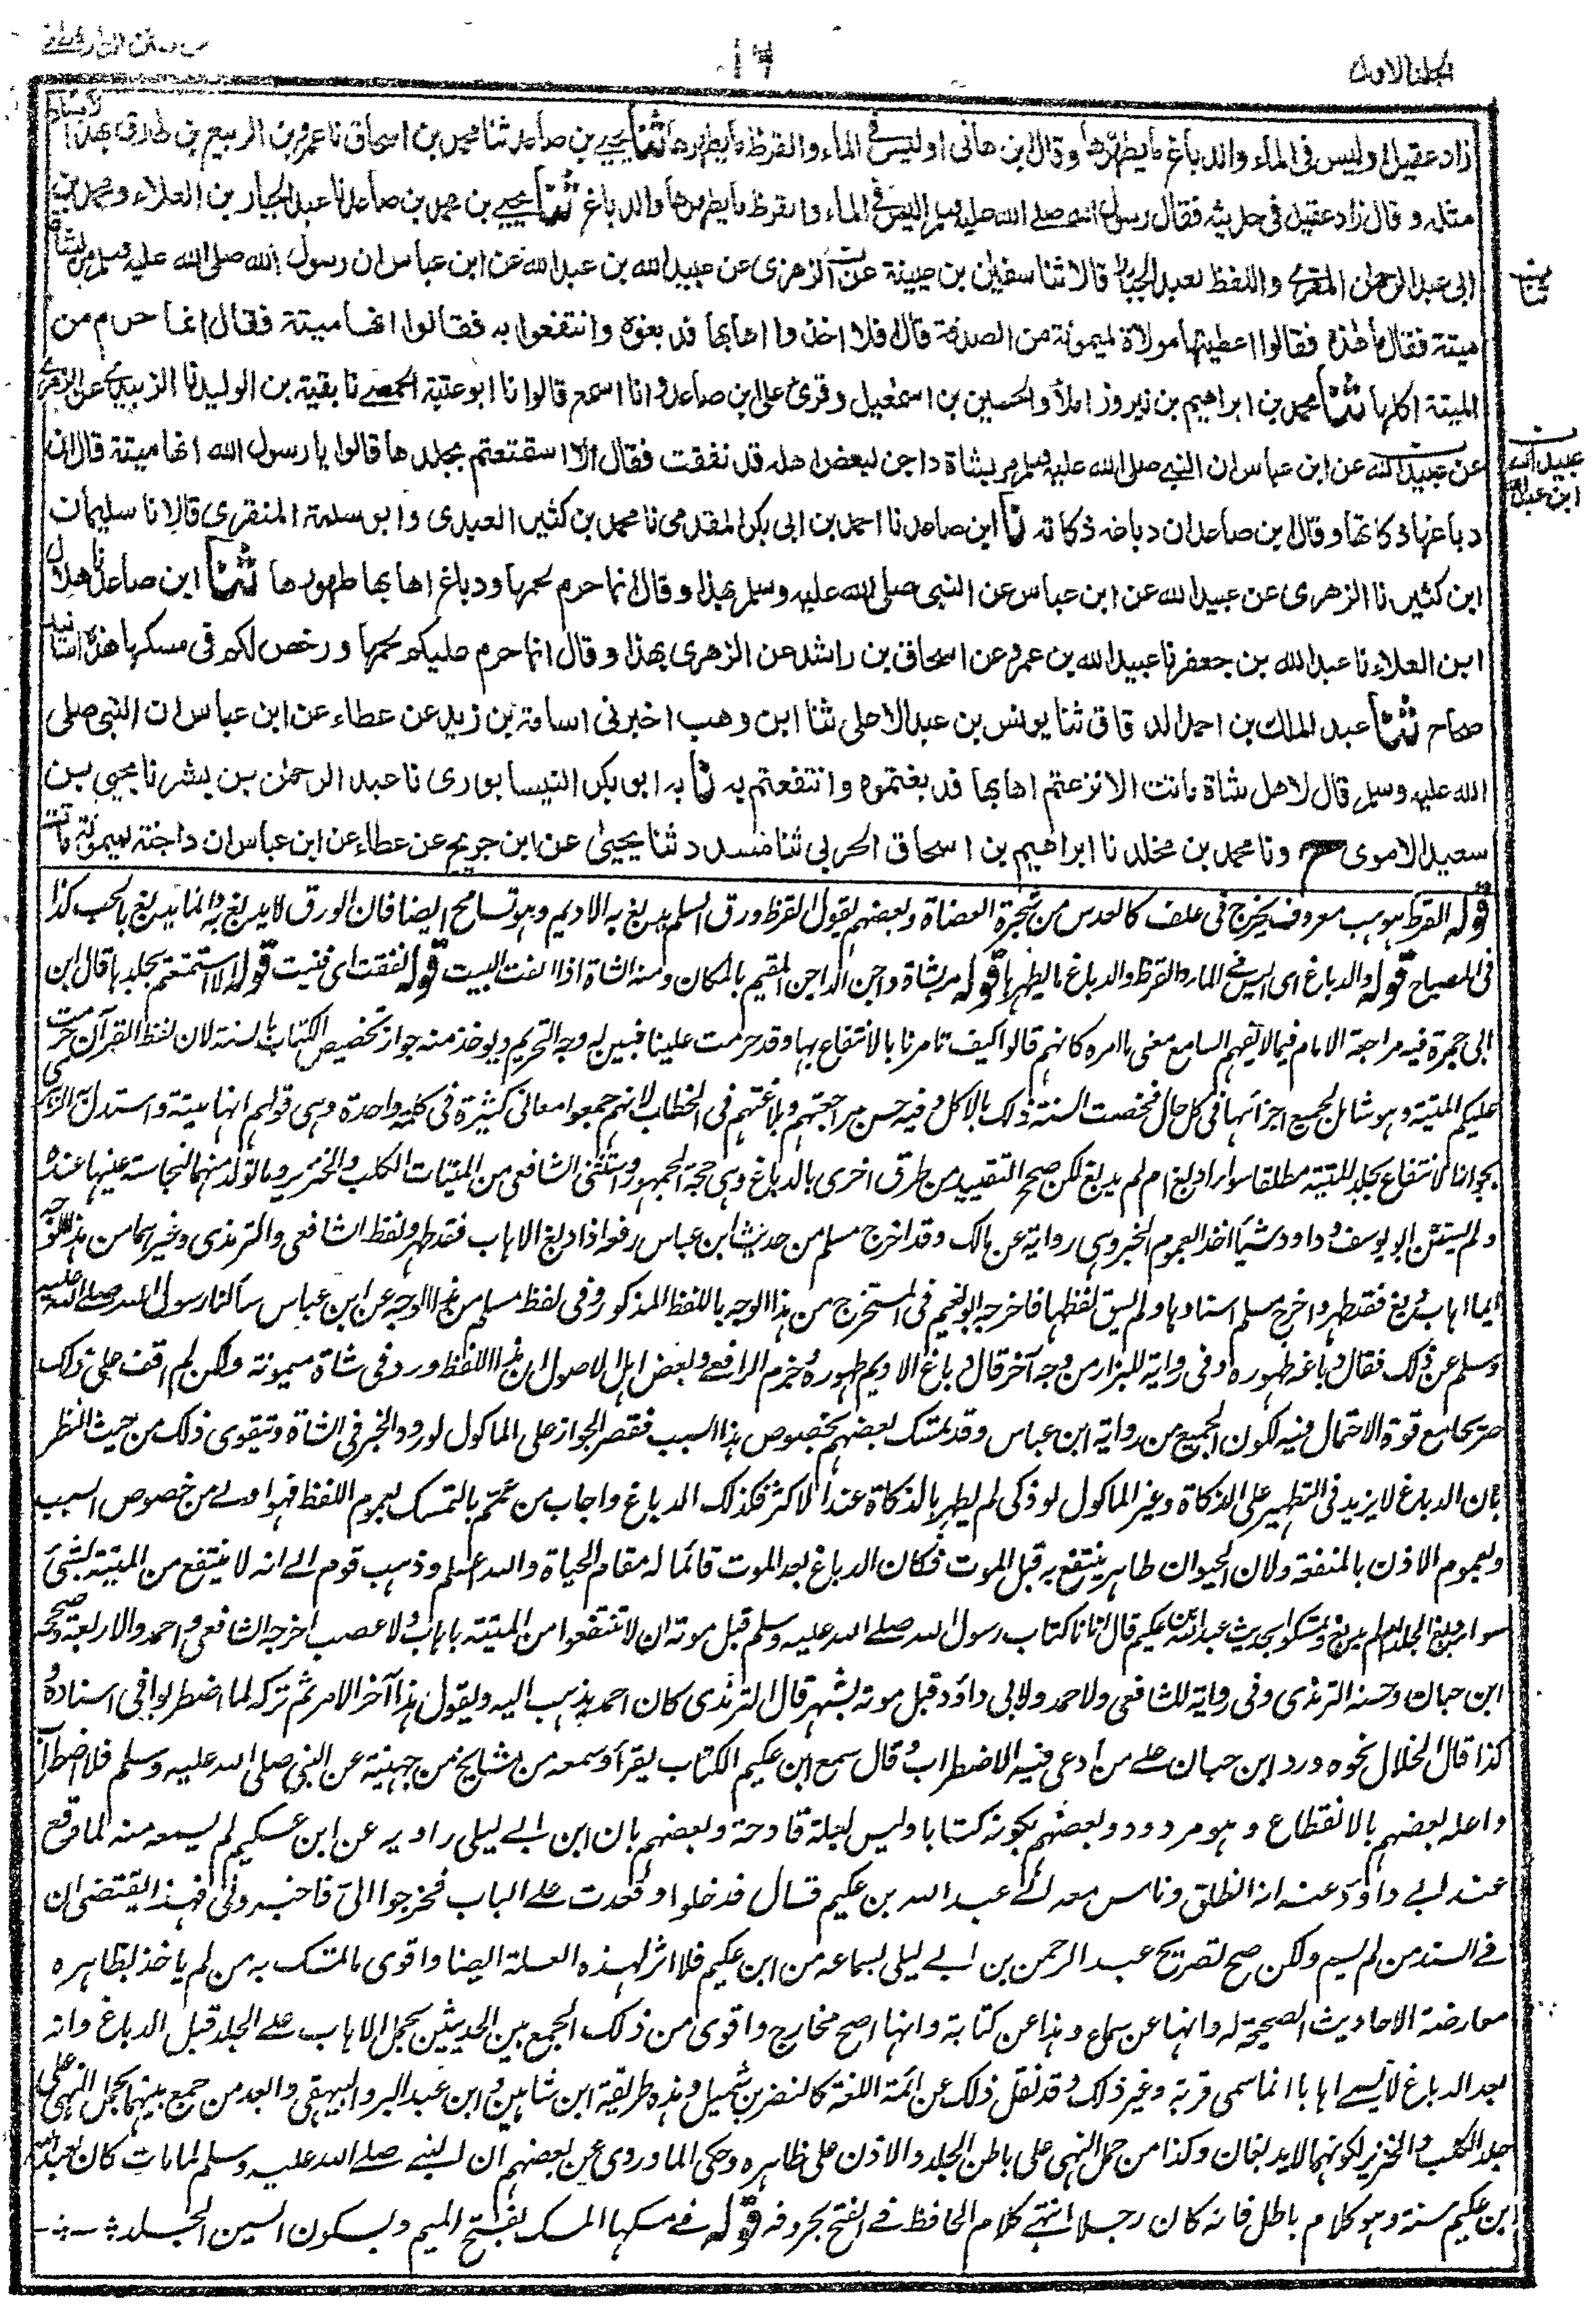 المجلد الاول
١٦
سنن الدارقطنى
زاد عقيل اوليس فى الماء والدباغ ما يطهرها وقال ابن هانى اوليس فى الماء والقرظ ما يطهرها ثنا يحيى بن صاعد ثنا محمد بن اسحاق نا عمرو بن الربيع بن طارق بهذا الاسناد
مثله وقال زاد عقيل فى حديثه فقال رسول الله صلى الله عليه وسلم اليس فى الماء والقرظ ما يطهرها والدباغ ثنا يحيى بن محمد بن صاعد نا عبد الجبار بن العلاء ومحمد بن
ابى عبد الرحمن المقرى واللفظ لعبد الجبار قالا ثنا سفين بن عيينة عن الزهرى عن عبيد الله بن عبد الله عن ابن عباس ان رسول الله صلى الله عليه وسلم مر بشاة
ميتة فقال ما هذه فقالوا اعطيتها مولاة لميمونة من الصدقة قال فلا اخذوا اهابها فدبغوه وانتفعوا به فقالوا انها ميتة فقال انما حرم من
الميتة اكلها ثنا محمد بن ابراهيم بن نيروز املأ والحسين بن اسمعيل وقرئ على ابن صاعد وانا اسمع قالوا نا ابو عتبة الحمصى نا بقية بن الوليد نا الزبيدى عن الزهرى
عن عبيد الله عن ابن عباس ان النبى صلى الله عليه وسلم مر بشاة داجن لبعض اهله قد نفقت فقال الا استمتعتم بجلدها قالوا يا رسول الله انها ميتة قال ان
عبيد الله
ابن عبد الله
دباغها ذكاتها وقال ابن صاعد ان دباغه ذكاته نا ابن صاعد نا احمد بن ابى بكر المقدمى نا محمد بن كثير العبدى وابو سلمة المنقرى قالا نا سليمان
ابن كثير نا الزهرى عن عبيد الله عن ابن عباس عن النبى صلى الله عليه وسلم بهذا وقال انما حرم لحمها ودباغ اهابها طهورها ثنا ابن صاعد نا هلال
ابن العلاء نا عبد الله بن جعفر نا عبيد الله بن عمرو عن اسحاق بن راشد عن الزهرى بهذا وقال انما حرم عليكم لحمها ورخص لكم فى مسكها هذه اسانيد
صحاح ثنا عبد الملك بن احمد الدقاق ثنا يونس بن عبد الاعلى ثنا ابن وهب اخبرنى اسامة بن زيد عن عطاء عن ابن عباس ان النبى صلى
الله عليه وسلم قال لاهل شاة ماتت الا نزعتم اهابها فدبغتموه وانتفعتم به نا به ابو بكر النيسابورى نا عبد الرحمن بن بشر نا يحيى بن
سعيد الاموى ح ونا محمد بن مخلد نا ابراهيم بن اسحاق الحربى ثنا مسدد ثنا يحيى عن ابن جريج عن عطاء عن ابن عباس ان داجنة لميمونة ماتت
قوله القرظ هو حب معروف يخرج فى غلف كالعدس من شجرة العضاة وبعضهم يقول القرظ ورق السلم يدبغ به الاديم وهو تسامح ايضا فان الورق لا يدبغ به وانما يدبغ بالحب كذا
فى المصباح قوله والدباغ اى اليس فى الماء والقرظ والدباغ ما يطهرها قوله مر بشاة داجن الداجن المقيم بالمكان ومنه الشاة اذا الفت البيت قوله نفقت اى فنيت قوله الا استمتعتم بجلدها قال ابن
ابى جمرة فيه مراجعة الامام فيما لا يفهم السامع معنى ما امره كانهم قالوا كيف تامرنا بالانتفاع بها وقد حرمت علينا فبين له وجه التحريم ويوخذ منه جواز تخصيص الكتاب بالسنة لان لفظ القرآن حرمت
عليكم الميتة وهو شامل لجميع اجزائها فى كل حال فخصت السنة ذلك بالاكل وفيه حسن مراجعتهم وبلاغتهم فى الخطاب لانهم جمعوا معانى كثيرة فى كلمة واحدة وهى قولهم انها ميتة واستدل الزهرى
بجواز الانتفاع بجلد الميتة مطلقا سواء ادبغ ام لم يدبغ لكن صح التقييد من طرق اخرى بالدباغ وهى حجة الجمهور واستثنى الشافعى من الميتات الكلب والخنزير وما تولد منهما لنجاسة عينها عنده
ولم يستثن ابو يوسف وداود شيئا اخذا لعموم الخبر وهى رواية عن مالك وقد اخرج مسلم من حديث ابن عباس رفعه اذا دبغ الاهاب فقد طهر ولفظ الشافعى والترمذى وغيرهما من هذا الوجه
ايما اهاب دبغ فقد طهر واخرج مسلم اسنادها ولم يسق لفظها فاخرجه ابو نعيم فى المستخرج من هذا الوجه باللفظ المذكور وفى لفظ مسلم من هذا الوجه عن ابن عباس سألنا رسول الله صلى الله عليه
وسلم عن ذلك فقال دباغه طهوره وفى رواية للبزار من وجه آخر قال دباغ الاديم طهوره وجزم الرافعى وبعض اهل الاصول ان هذا اللفظ ورد فى شاة ميمونة ولكن لم اقف على ذلك
صريحا مع قوة الاحتمال فيه لكون الجميع من رواية ابن عباس وقد تمسك بعضهم بخصوص هذا السبب فقصر الجواز على الماكول لورود الخبر فى الشاة ويتقوى ذلك من حيث النظر
بان الدباغ لا يزيد فى التطهير على الذكاة وغير الماكول لو ذكى لم يطهر بالذكاة عند الاكثر فكذلك الدباغ واجاب من عمم بالتمسك بعموم اللفظ فهو اولى من خصوص السبب
ولعموم الاذن بالمنفعة ولان الحيوان طاهر ينتفع به قبل الموت فكان الدباغ بعد الموت قائما له مقام الحياة والله اعلم وذهب قوم الى انه لا ينتفع من الميتة بشئ
سواء دبغ الجلد ام لم يدبغ وتمسكوا بحديث عبد الله بن عكيم قال اتانا كتاب رسول الله صلى الله عليه وسلم قبل موته ان لا تنتفعوا من الميتة باهاب ولا عصب اخرجه الشافعى واحمد والاربعة وصححه
ابن حبان وحسنه الترمذى وفى رواية للشافعى ولاحمد ولابى داود قبل موته بشهر قال الترمذى كان احمد يذهب اليه ويقول هذا آخر الامر ثم تركه لما اضطربوا فى اسناده و
كذا قال الخلال نحوه ورد ابن حبان على من ادعى فيه الاضطراب وقال سمع ابن عكيم الكتاب يقرأ وسمعه من مشايخ من جهينة عن النبى صلى الله عليه وسلم فلا اضطراب
واعله بعضهم بالانقطاع وهو مردود وبعضهم بكونه كتابا وليس لعلة قادحة وبعضهم بان ابن ابى ليلى راويه عن ابن عكيم لم يسمعه منه لما وقع
عند ابى داود عنه انه انطلق وناس معه الى عبد الله بن عكيم قال فدخلوا وقعدت على الباب فخرجوا الىّ فاخبرونى فهذا يقتضى ان
فى السند من لم يسم ولكن صح تصريح عبد الرحمن بن ابى ليلى بسماعه من ابن عكيم فلا اثر لهذه العلة ايضا واقوى ما تمسك به من لم ياخذ بظاهره
معارضة الاحاديث الصحيحة له وانها عن سماع وهذا عن كتابة وانها اصح مخارج واقوى من ذلك الجمع بين الحديثين بحمل الاهاب على الجلد قبل الدباغ وانه
بعد الدباغ لا يسمى اهابا انما سمى قربة وغير ذلك وقد نقل ذلك عن ائمة اللغة كالنضر بن شميل وهذه طريقة ابن شاهين وابن عبد البر والبيهقى وابعد من جمع بينهما بحمل النهى على
جلد الكلب والخنزير لكونهما لا يدبغان وكذا من حمل النهى على باطن الجلد والاذن على ظاهره وحكى الماوردى عن بعضهم ان النبى صلى الله عليه وسلم لما مات كان لعبد الله
ابن عكيم سنة وهو كلام باطل فانه كان رجلا انتهى كلام الحافظ فى الفتح بحروفه قوله فى مسكها المسك بفتح الميم وبسكون السين الجلد